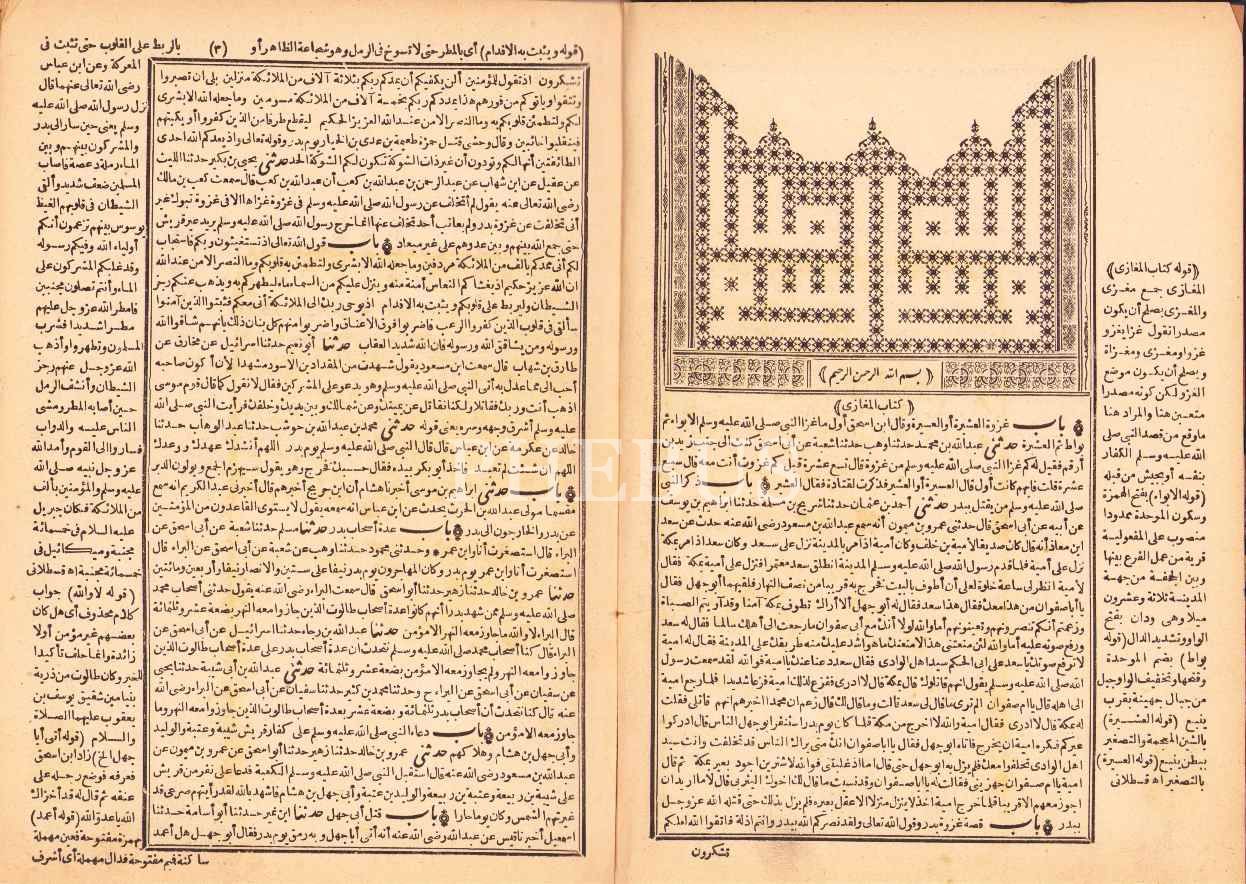 ﴿قوله كتاب المغازى﴾
المغازى جمع مغزى
والمغزى يصلح أن يكون
مصدرا تقول غزا يغزو
غزوا ومغزى ومغزاة
ويصلح أن يكون موضع
الغزو لكن كونه مصدرا
متعين هنا والمراد هنا
ما وقع من قصد النبى صلى
الله عليه وسلم الكفار
بنفسه أو بجيش من قبله
(قوله الابواء) بفتح الهمزة
وسكون الموحدة ممدودا
منصوب على المفعولية
قرية من عمل الفرع بينها
وبين الجحفة من جهة
المدينة ثلاثة وعشرون
ميلا وهى ودان بفتح
الواو وتشديد الدال (قوله
بواط) بضم الموحدة
وفتحها وتخفيف الواو جبل
من جبال جهينة بقرب
ينبع (قوله العشيرة)
بالشين المعجمة والتصغير
ببطن ينبع (قوله العسيرة)
بالتصغير اه قسطلانى
﴿بسم الله الرحمن الرحيم﴾
﴿كتاب المغازى﴾
باب غزوة العشيرة أو العسيرة وقال ابن اسحق أول ما غزا النبى صلى الله عليه وسلم الابواء ثم
بواط ثم العشيرة حدثنى عبدالله بن محمد حدثنا وهب حدثنا شعبة عن أبى اسحق كنت الى جنب زيد بن
أرقم فقيل له كم غزا النبى صلى الله عليه وسلم من غزوة قال تسع عشرة قيل كم غزوت أنت معه قال سبع
عشرة قلت فأيهم كانت أول قال العسيرة أو العشير فذكرت لقتادة فقال العشير باب ذكر النبى
صلى الله عليه وسلم من يقتل ببدر حدثنى أحمد بن عثمان حدثنا شريح بن مسلمة حدثنا ابراهيم بن يوسف
عن أبيه عن أبى اسحق قال حدثنى عمرو بن ميمون أنه سمع عبدالله بن مسعود رضى الله عنه حدث عن سعد
ابن معاذ أنه قال كان صديقا لأمية بن خلف وكان أمية اذا مر بالمدينة نزل على سعد وكان سعد اذا مر بمكة
نزل على أمية فلما قدم رسول الله صلى الله عليه وسلم المدينة انطلق سعد معتمرا فنزل على أمية بمكة فقال
لأمية انظر لى ساعة خلوة لعلى أن أطوف بالبيت فخرج به قريبا من نصف النهار فلقيهما أبو جهل فقال
يا أبا صفوان من هذا معك فقال هذا سعد فقال له أبو جهل ألا أراك تطوف بمكة آمنا وقد آويتم الصباة
وزعمتم أنكم تنصرونهم وتعينونهم أما والله لولا أنك مع أبى صفوان ما رجعت الى أهلك سالما فقال له سعد
ورفع صوته عليه أما والله لئن منعتنى هذا لامنعنك ما هو أشد عليك منه طريقك على المدينة فقال له امية
لا ترفع صوتك يا سعد على ابى الحكم سيد اهل الوادى فقال سعد دعنا عنك يا امية فو الله لقد سمعت رسول
الله صلى الله عليه وسلم يقول انهم قاتلوك قال بمكة قال لا ادرى ففزع لذلك امية فزعا شديدا فلما رجع امية
الى اهله قال يا ام صفوان الم ترى ما قال لى سعد قالت وما قال لك قال زعم ان محمدا اخبرهم انهم قاتلى فقلت
له بمكة قال لا ادرى فقال امية والله لا اخرج من مكة فلما كان يوم بدر استنفر ابو جهل الناس قال ادركوا
عيركم فكره امية ان يخرج فاتاه ابو جهل فقال يا ابا صفوان انك متى يراك الناس قد تخلفت وانت سيد
اهل الوادى تخلفوا معك فلم يزل به ابو جهل حتى قال اما اذ غلبتنى فو الله لاشترين اجود بعير بمكة ثم قال
امية يا ام صفوان جهزينى فقالت له يا ابا صفوان وقد نسيت ما قال لك اخوك اليثربى قال لا ما اريد ان
اجوز معهم الا قريبا فلما خرج امية اخذ لا ينزل منزلا الا عقل بعيره فلم يزل بذلك حتى قتله الله عز وجل
ببدر باب قصة غزوة بدر وقول الله تعالى ولقد نصركم الله ببدر وانتم اذلة فاتقوا الله لعلكم
تشكرون
(قوله ويثبت به الاقدام) أى بالمطر حتى لا تسوخ فى الرمل وهو شجاعة الظاهر أو (٣) بالربط على القلوب حتى تثبت فى
المعركة وعن ابن عباس
رضى الله تعالى عنهما قال
نزل رسول الله صلى الله عليه
وسلم يعنى حين سار الى بدر
والمشركون بينهم وبين
الماء رملة دعصة فأصاب
المسلمين ضعف شديد وألقى
الشيطان فى قلوبهم الغيظ
يوسوس بينهم تزعمون أنكم
أولياء الله وفيكم رسوله
وقد غلبكم المشركون على
الماء وأنتم تصلون مجنبين
فامطر الله عز وجل عليهم
مطرا شديدا فشرب
المسلمون وتطهروا وأذهب
الله عز وجل عنهم رجز
الشيطان وأنشف الرمل
حين أصابه المطر ومشى
الناس عليه والدواب
فساروا الى القوم وأمد الله
عز وجل نبيه صلى الله
عليه وسلم والمؤمنين بألف
من الملائكة فكان جبريل
عليه السلام فى خمسمائة
مجنبة وميكائيل فى
خمسمائة مجنبة اه قسطلانى
(قوله لا والله) جواب
كلام محذوف أى هل كان
بعضهم غير مؤمن أو لا
زائدة وانما حلف تأكيدا
للخبر وكان طالوت من ذرية
بنيامين شقيق يوسف بن
يعقوب عليهما الصلاة
والسلام (قوله أتى أبا
جهل الخ) زاد ابن اسحق
فعرفه فوضع رجله على
عنقه ثم قال له قد أخزاك
الله يا عدو الله (قوله أعمد)
بهمزة مفتوحة فعين مهملة
ساكنة فميم مفتوحة فدال مهملة أى أشرف
تشكرون اذ تقول للمؤمنين ألن يكفيكم أن يمدكم ربكم بثلاثة آلاف من الملائكة منزلين بلى ان تصبروا
وتتقوا ويأتوكم من فورهم هذا يمددكم ربكم بخمسة آلاف من الملائكة مسومين وما جعله الله الا بشرى
لكم ولتطمئن قلوبكم به وما النصر الا من عند الله العزيز الحكيم ليقطع طرفا من الذين كفروا أو يكبتهم
فينقلبوا خائبين وقال وحشى قتل حمزة طعيمة بن عدى بن الخيار يوم بدر وقوله تعالى واذ يعدكم الله احدى
الطائفتين أنها لكم وتودون أن غير ذات الشوكة تكون لكم الشوكة الحد حدثنى يحيى بن بكير حدثنا الليث
عن عقيل عن ابن شهاب عن عبد الرحمن بن عبدالله بن كعب أن عبدالله بن كعب قال سمعت كعب بن مالك
رضى الله تعالى عنه يقول لم أتخلف عن رسول الله صلى الله عليه وسلم فى غزوة غزاها الا فى غزوة تبوك غير
أنى تخلفت عن غزوة بدر ولم يعاتب أحد تخلف عنها انما خرج رسول الله صلى الله عليه وسلم يريد عير قريش
حتى جمع الله بينهم وبين عدوهم على غير ميعاد باب قول الله تعالى اذ تستغيثون ربكم فاستجاب
لكم أنى ممدكم بألف من الملائكة مردفين وما جعله الله الا بشرى ولتطمئن به قلوبكم وما النصر الا من عند الله
ان الله عزيز حكيم اذ يغشاكم النعاس أمنة منه وينزل عليكم من السماء ماء ليطهركم به ويذهب عنكم رجز
الشيطان وليربط على قلوبكم ويثبت به الاقدام اذ يوحى ربك الى الملائكة أنى معكم فثبتوا الذين آمنوا
سألقى فى قلوب الذين كفروا الرعب فاضربوا فوق الاعناق واضربوا منهم كل بنان ذلك بأنهم شاقوا الله
ورسوله ومن يشاقق الله ورسوله فان الله شديد العقاب حدثنا أبو نعيم حدثنا اسرائيل عن مخارق عن
طارق بن شهاب قال سمعت ابن مسعود يقول شهدت من المقداد بن الاسود مشهدا لأن أكون صاحبه
أحب الى مما عدل به أتى النبى صلى الله عليه وسلم وهو يدعو على المشركين فقال لا نقول كما قال قوم موسى
اذهب أنت وربك فقاتلا ولكنا نقاتل عن يمينك وعن شمالك وبين يديك وخلفك فرأيت النبى صلى الله
عليه وسلم أشرق وجهه وسره يعنى قوله حدثنى محمد بن عبدالله بن حوشب حدثنا عبد الوهاب حدثنا
خالد عن عكرمة عن ابن عباس قال قال النبى صلى الله عليه وسلم يوم بدر اللهم أنشدك عهدك ووعدك
اللهم ان شئت لم تعبد فأخذ أبو بكر بيده فقال حسبك فخرج وهو يقول سيهزم الجمع ويولون الدبر
باب حدثنى ابراهيم بن موسى أخبرنا هشام أن ابن جريج أخبرهم قال أخبرنى عبد الكريم انه سمع
مقسما مولى عبدالله بن الحرث يحدث عن ابن عباس انه سمعه يقول لا يستوى القاعدون من المؤمنين
عن بدر والخارجون الى بدر باب عدة أصحاب بدر حدثنا مسلم حدثنا شعبة عن أبى اسحق عن
البراء قال استصغرت أنا وابن عمر وحدثنى محمود حدثنا وهب عن شعبة عن أبى اسحق عن البراء قال
استصغرت أنا وابن عمر يوم بدر وكان المهاجرون يوم بدر نيفا على ستين والانصار نيفا وأربعين ومائتين
حدثنا عمرو بن خالد حدثنا زهير حدثنا أبو اسحق قال سمعت البراء رضى الله عنه يقول حدثنى أصحاب محمد
صلى الله عليه وسلم ممن شهد بدرا أنهم كانوا عدة أصحاب طالوت الذين جازوا معه النهر بضعة عشر وثلثمائة
قال البراء لا والله ما جاوز معه النهر الا مؤمن حدثنا عبدالله بن رجاء حدثنا اسرائيل عن أبى اسحق عن
البراء قال كنا أصحاب محمد صلى الله عليه وسلم نتحدث ان عدة أصحاب بدر على عدة أصحاب طالوت الذين
جاوزوا معه النهر ولم يجاوز معه الا مؤمن بضعة عشر وثلثمائة حدثنى عبدالله بن أبى شيبة حدثنا يحيى
عن سفيان عن أبى اسحق عن البراء ح وحدثنا محمد بن كثير حدثنا سفيان عن أبى اسحق عن البراء رضى الله
عنه قال كنا نتحدث أن أصحاب بدر ثلثمائة وبضعة عشر بعدة أصحاب طالوت الذين جاوزوا معه النهر وما
جاوز معه الا مؤمن باب دعاء النبى صلى الله عليه وسلم على كفار قريش شيبة وعتبة والوليد
وأبى جهل بن هشام وهلاكهم حدثنى عمرو بن خالد حدثنا زهير حدثنا أبو اسحق عن عمرو بن ميمون عن
عبدالله بن مسعود رضى الله عنه قال استقبل النبى صلى الله عليه وسلم الكعبة فدعا على نفر من قريش
على شيبة بن ربيعة وعتبة بن ربيعة والوليد بن عتبة وأبى جهل بن هشام فأشهد بالله لقد رأيتهم صرعى قد
غيرتهم الشمس وكان يوما حارا باب قتل أبى جهل حدثنا ابن نمير حدثنا أبو أسامة حدثنا
اسمعيل أخبرنا قيس عن عبدالله رضى الله عنه أنه أتى أبا جهل وبه رمق يوم بدر فقال أبو جهل هل أعمد
PHEBUS